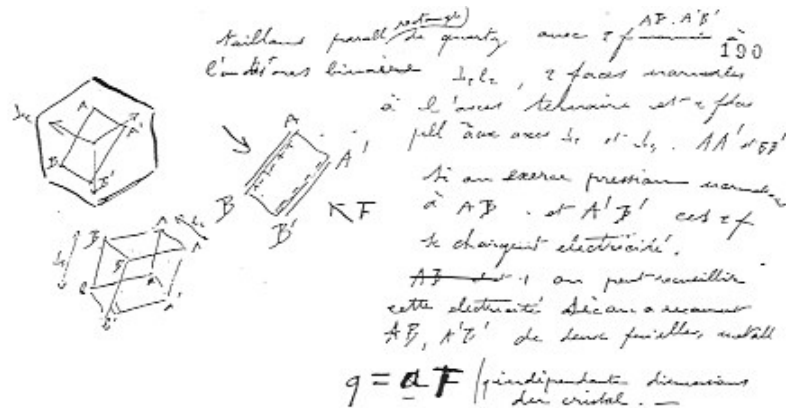 taillons parall rectangle de quartz avec 2 f AB. A'B'
190
l'un des axes binaire , 2 faces normales
à l'axe ternaire et 2 faces
pll aux axes et . AA' et BB'
Si on exerce pression normale
à AB . et A'B' ces 2 f
se chargent electricité.
AB et on peut recueillir
cette electricité si on a recouvert
AB, A'B' de deux feuilles metall
q = a F / q indépendante dimensions
du cristal . —
A
A'
B
B'
A
A'
B
B'
F
B
A
B
A
A'
B'